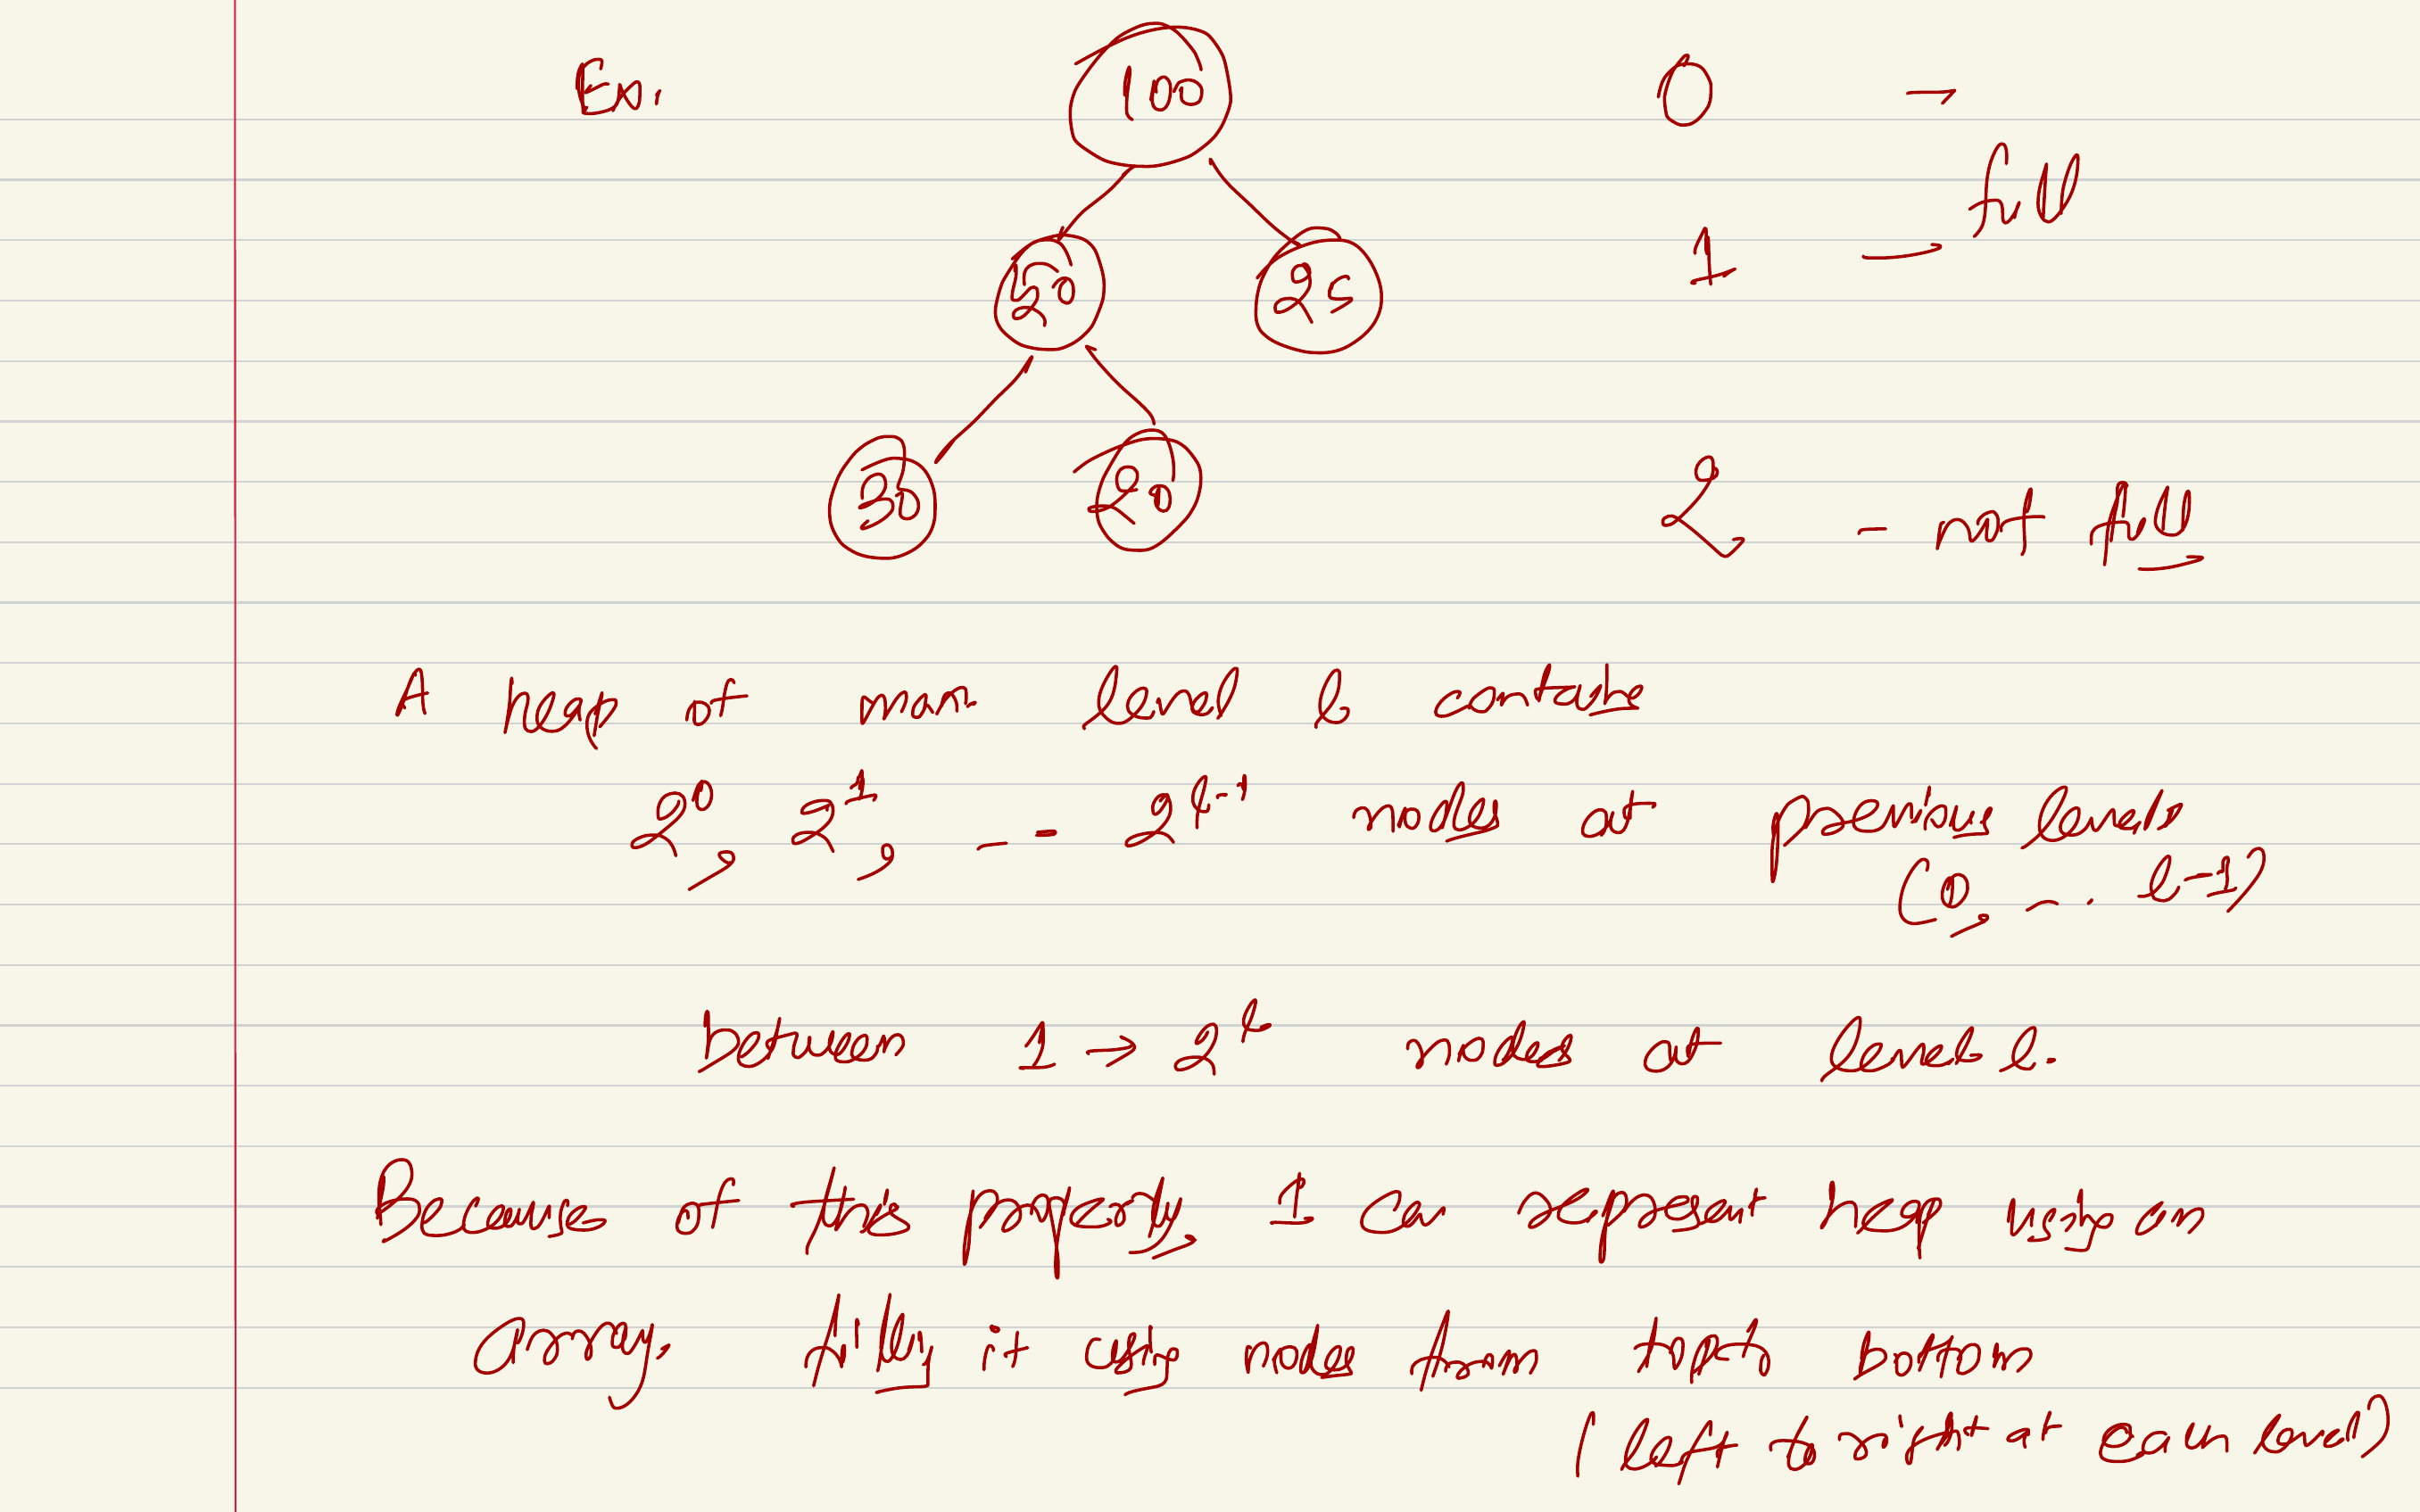 Ex. 100 0 →
full
50 25 1 →
30 20 2 - not full
A heap of max level l contains
2^0, 2^1, --- 2^{l-1} nodes at previous levels
(0, --. l-1)
between 1 → 2^l nodes at level l.
Because of this property, I can represent heap using an
array, filling it using nodes from top to bottom
(left to right at each level)